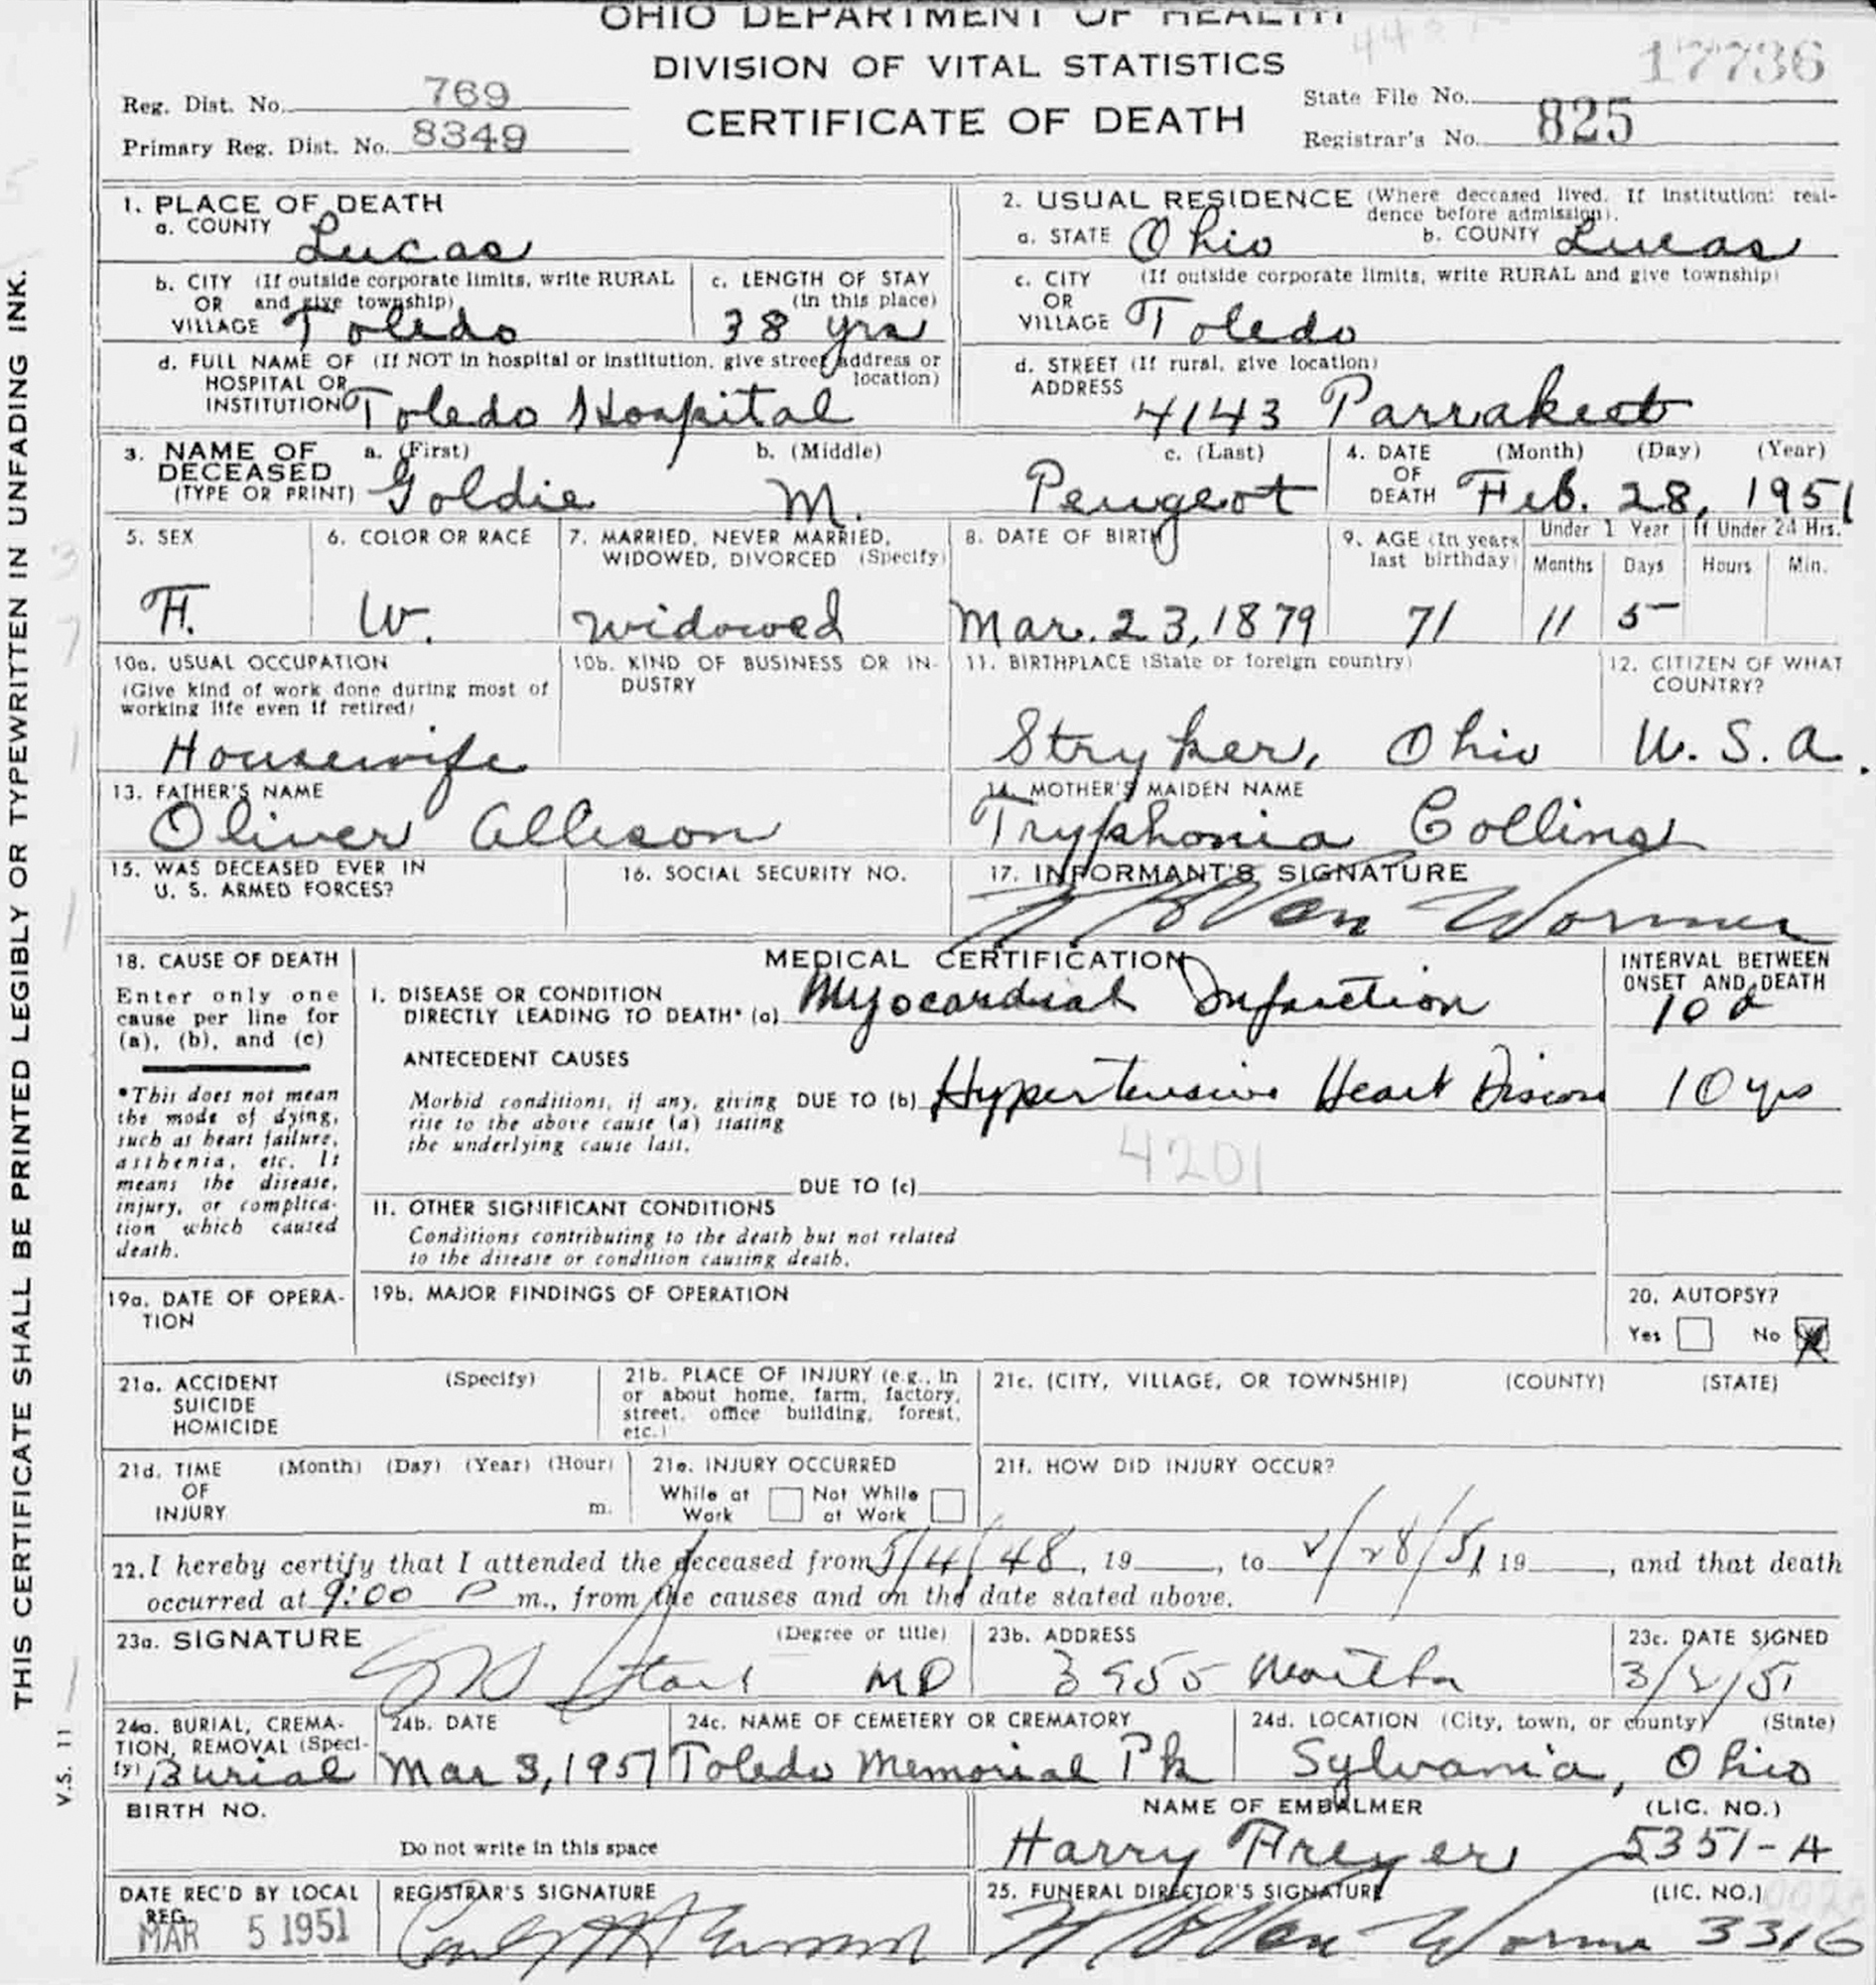 OHIO DEPARTMENT OF HEALTH
DIVISION OF VITAL STATISTICS
CERTIFICATE OF DEATH
Reg. Dist. No. 769
Primary Reg. Dist. No. 8349
17736
State File No.
Registrar's No. 825
THIS CERTIFICATE SHALL BE PRINTED LEGIBLY OR TYPEWRITTEN IN UNFADING INK.
V.S. 11
1. PLACE OF DEATH
a. COUNTY Lucas
2. USUAL RESIDENCE (Where deceased lived. If institution: resi-
dence before admission).
a. STATE Ohio b. COUNTY Lucas
b. CITY (If outside corporate limits, write RURAL
OR and give township)
VILLAGE Toledo
c. LENGTH OF STAY
(in this place)
38 yrs
c. CITY (If outside corporate limits, write RURAL and give township)
OR
VILLAGE Toledo
d. FULL NAME OF (If NOT in hospital or institution, give street address or
HOSPITAL OR location)
INSTITUTION Toledo Hospital
d. STREET (If rural, give location)
ADDRESS
4143 Parrakeet
3. NAME OF a. (First) b. (Middle) c. (Last)
DECEASED
(TYPE OR PRINT) Goldie M. Peugeot
4. DATE (Month) (Day) (Year)
OF
DEATH Feb. 28, 1951
5. SEX
F.
6. COLOR OR RACE
W.
7. MARRIED, NEVER MARRIED,
WIDOWED, DIVORCED (Specify)
widowed
8. DATE OF BIRTH
Mar. 23, 1879
9. AGE (In years
last birthday)
71
Under 1 Year If Under 24 Hrs.
Months Days Hours Min.
11 5
10a. USUAL OCCUPATION
(Give kind of work done during most of
working life even if retired)
Housewife
10b. KIND OF BUSINESS OR IN-
DUSTRY
11. BIRTHPLACE (State or foreign country)
Stryker, Ohio
12. CITIZEN OF WHAT
COUNTRY?
U. S. A.
13. FATHER'S NAME
Oliver Allison
14. MOTHER'S MAIDEN NAME
Tryphonia Collins
15. WAS DECEASED EVER IN
U. S. ARMED FORCES?
16. SOCIAL SECURITY NO.
17. INFORMANT'S SIGNATURE
Van Wormer
18. CAUSE OF DEATH
Enter only one
cause per line for
(a), (b), and (c)
*This does not mean
the mode of dying,
such as heart failure,
asthenia, etc. It
means the disease,
injury, or complica-
tion which caused
death.
MEDICAL CERTIFICATION
INTERVAL BETWEEN
ONSET AND DEATH
I. DISEASE OR CONDITION
DIRECTLY LEADING TO DEATH* (a) Myocardial Infarction 10 d
ANTECEDENT CAUSES
Morbid conditions, if any, giving
rise to the above cause (a) stating
the underlying cause last.
DUE TO (b) Hypertensive Heart Disease 10 yrs
4201
DUE TO (c)
II. OTHER SIGNIFICANT CONDITIONS
Conditions contributing to the death but not related
to the disease or condition causing death.
19a. DATE OF OPERA-
TION
19b. MAJOR FINDINGS OF OPERATION
20. AUTOPSY?
Yes No
21a. ACCIDENT (Specify)
SUICIDE
HOMICIDE
21b. PLACE OF INJURY (e.g., in
or about home, farm, factory,
street, office building, forest,
etc.)
21c. (CITY, VILLAGE, OR TOWNSHIP) (COUNTY) (STATE)
21d. TIME (Month) (Day) (Year) (Hour)
OF
INJURY m.
21e. INJURY OCCURRED
While at Not While
Work at Work
21f. HOW DID INJURY OCCUR?
22. I hereby certify that I attended the deceased from 5/4/48, 19, to 2/28/51 19, and that death
occurred at 9:00 P m., from the causes and on the date stated above.
23a. SIGNATURE (Degree or title)
MD
23b. ADDRESS
3955
23c. DATE SIGNED
3/2/51
24a. BURIAL, CREMA-
TION, REMOVAL (Speci-
fy) Burial
24b. DATE
Mar 3, 1951
24c. NAME OF CEMETERY OR CREMATORY
Toledo Memorial Pk
24d. LOCATION (City, town, or county) (State)
Sylvania, Ohio
BIRTH NO.
Do not write in this space
NAME OF EMBALMER (LIC. NO.)
Harry Freyer 5351-A
DATE REC'D BY LOCAL
REG.
MAR 5 1951
REGISTRAR'S SIGNATURE
25. FUNERAL DIRECTOR'S SIGNATURE (LIC. NO.)
Van Wormer 3316